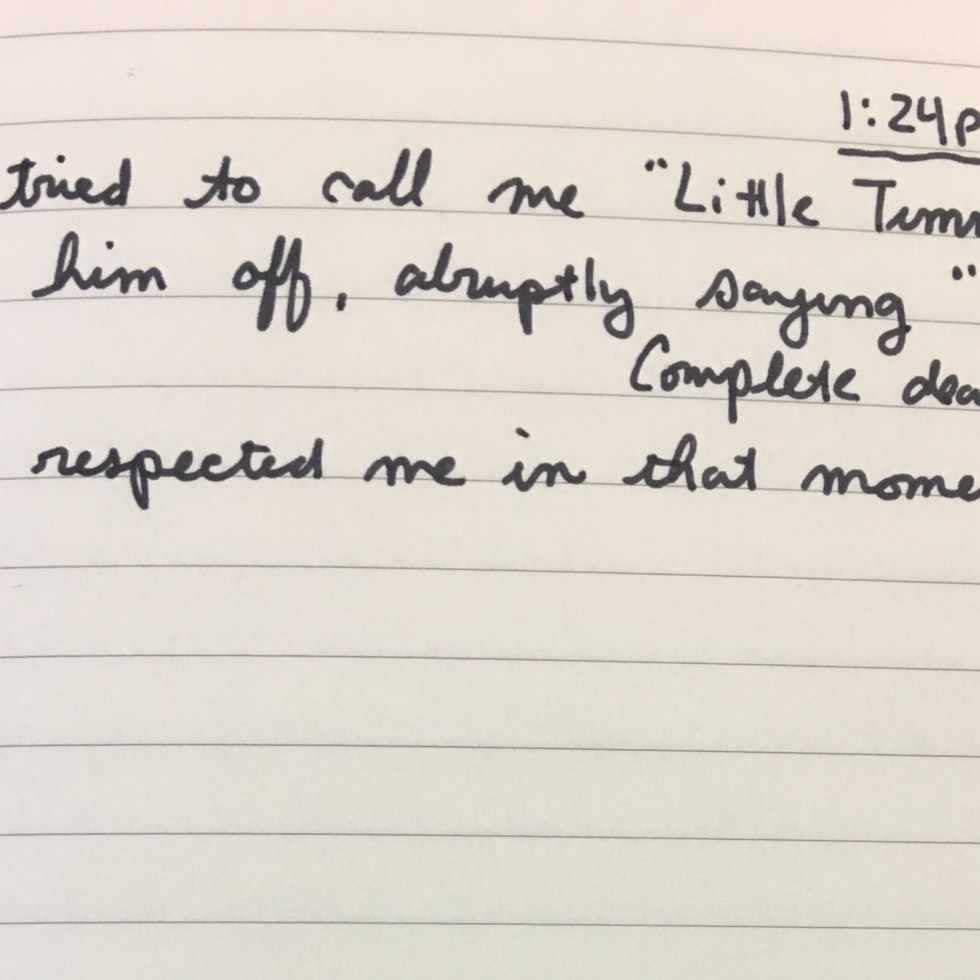 1:24p
tried to call me "Little Timm
him off, abruptly saying "
Complete dea
respected me in that mome